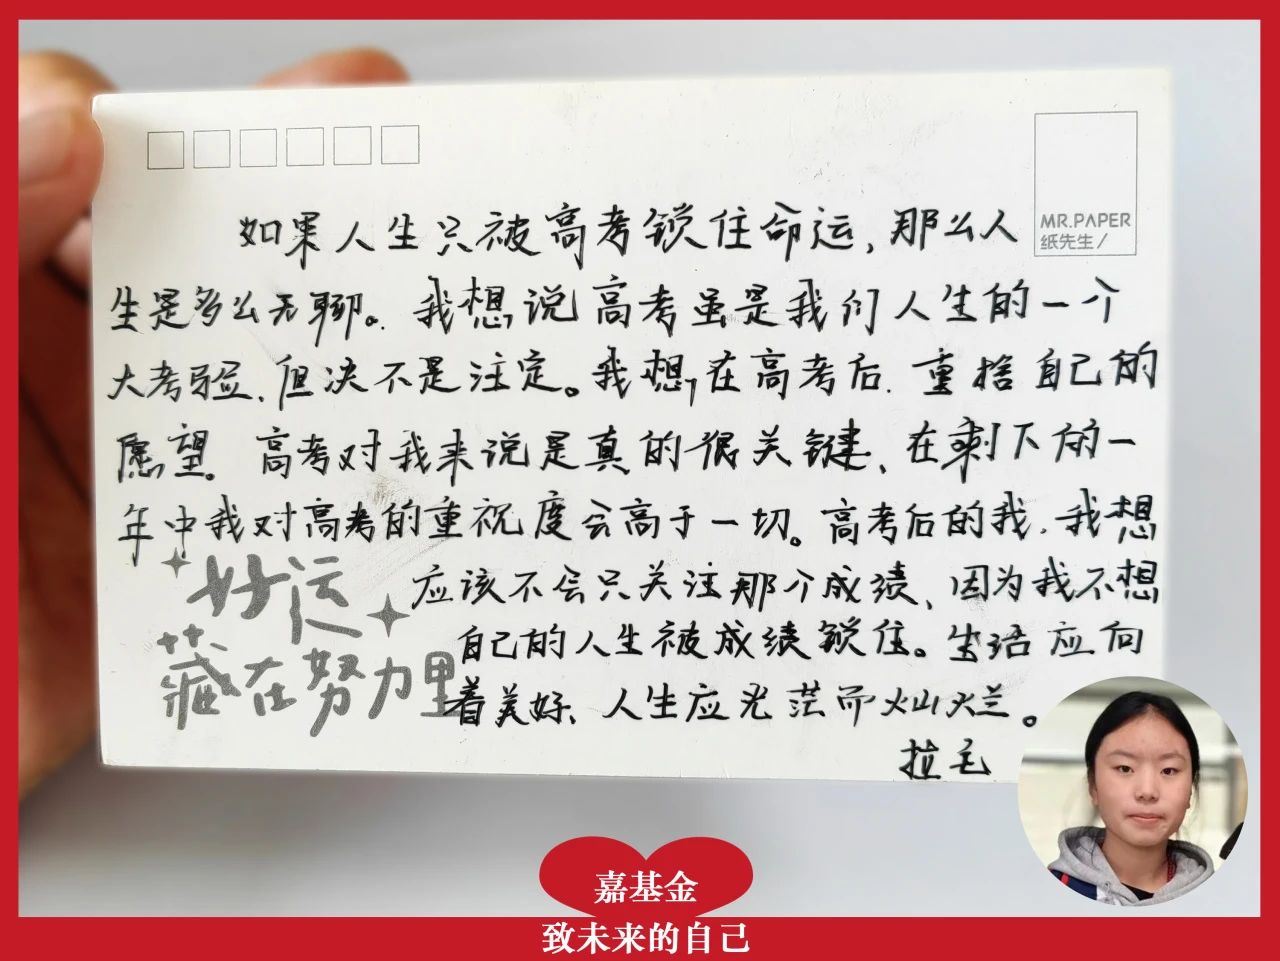 MR.PAPER
纸先生/
如果人生只被高考锁住命运,那么人
生是多么无聊。我想说高考虽是我们人生的一个
大考验,但决不是注定。我想,在高考后,重拾自己的
愿望。高考对我来说是真的很关键、在剩下的一
年中我对高考的重视度会高于一切。高考后的我,我想
应该不会只关注那个成绩、因为我不想
自己的人生被成绩锁住。生活应向
着美好、人生应光茫而灿烂。
拉毛
好运
藏在努力里
嘉基金
致未来的自己